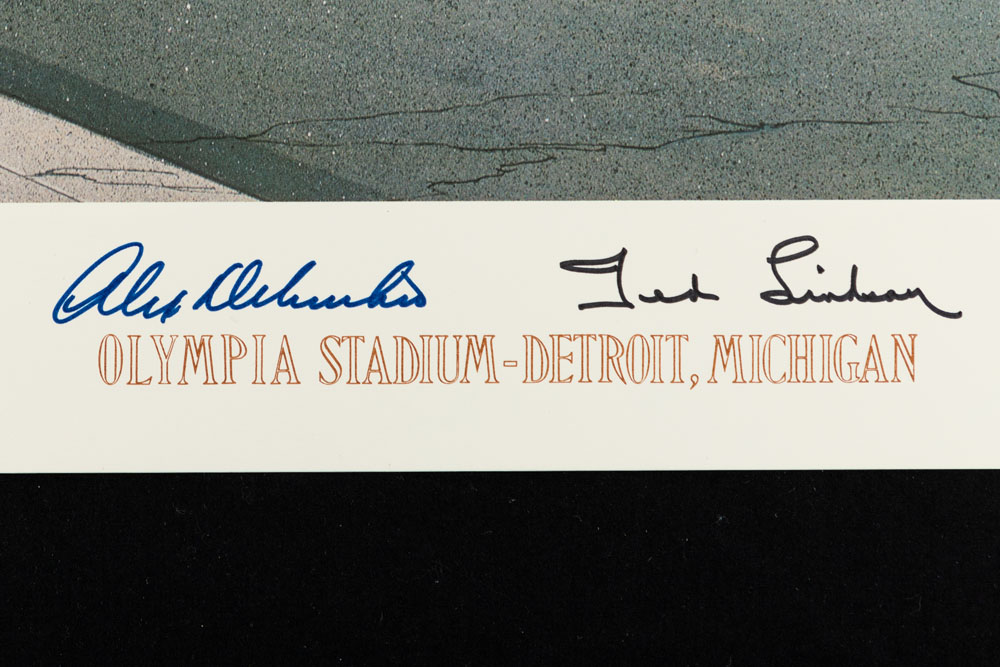 Alex Delvecchio Ted Lindsay
OLYMPIA STADIUM-DETROIT, MICHIGAN